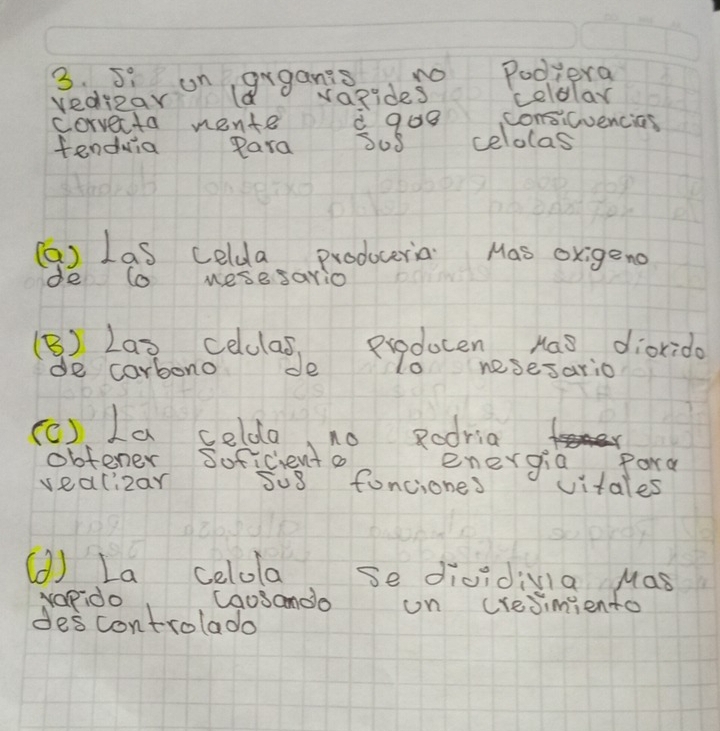 3. Si un organis no Podiera
redizar la rapides celolar
correcta mente ¿ que consicuencias
tendria Para sus celolas
(a) Las celula produceria Mas oxigeno
de lo nesesario
(B) Las celulas, producen Mas dioxido
de carbono de lo nesesario
(c) La celda no Podria
obtener suficiente energia Para
realizar sus funciones vitales
(d) La celola se dividiria Mas
rapido causando un cresimiento
des controlado